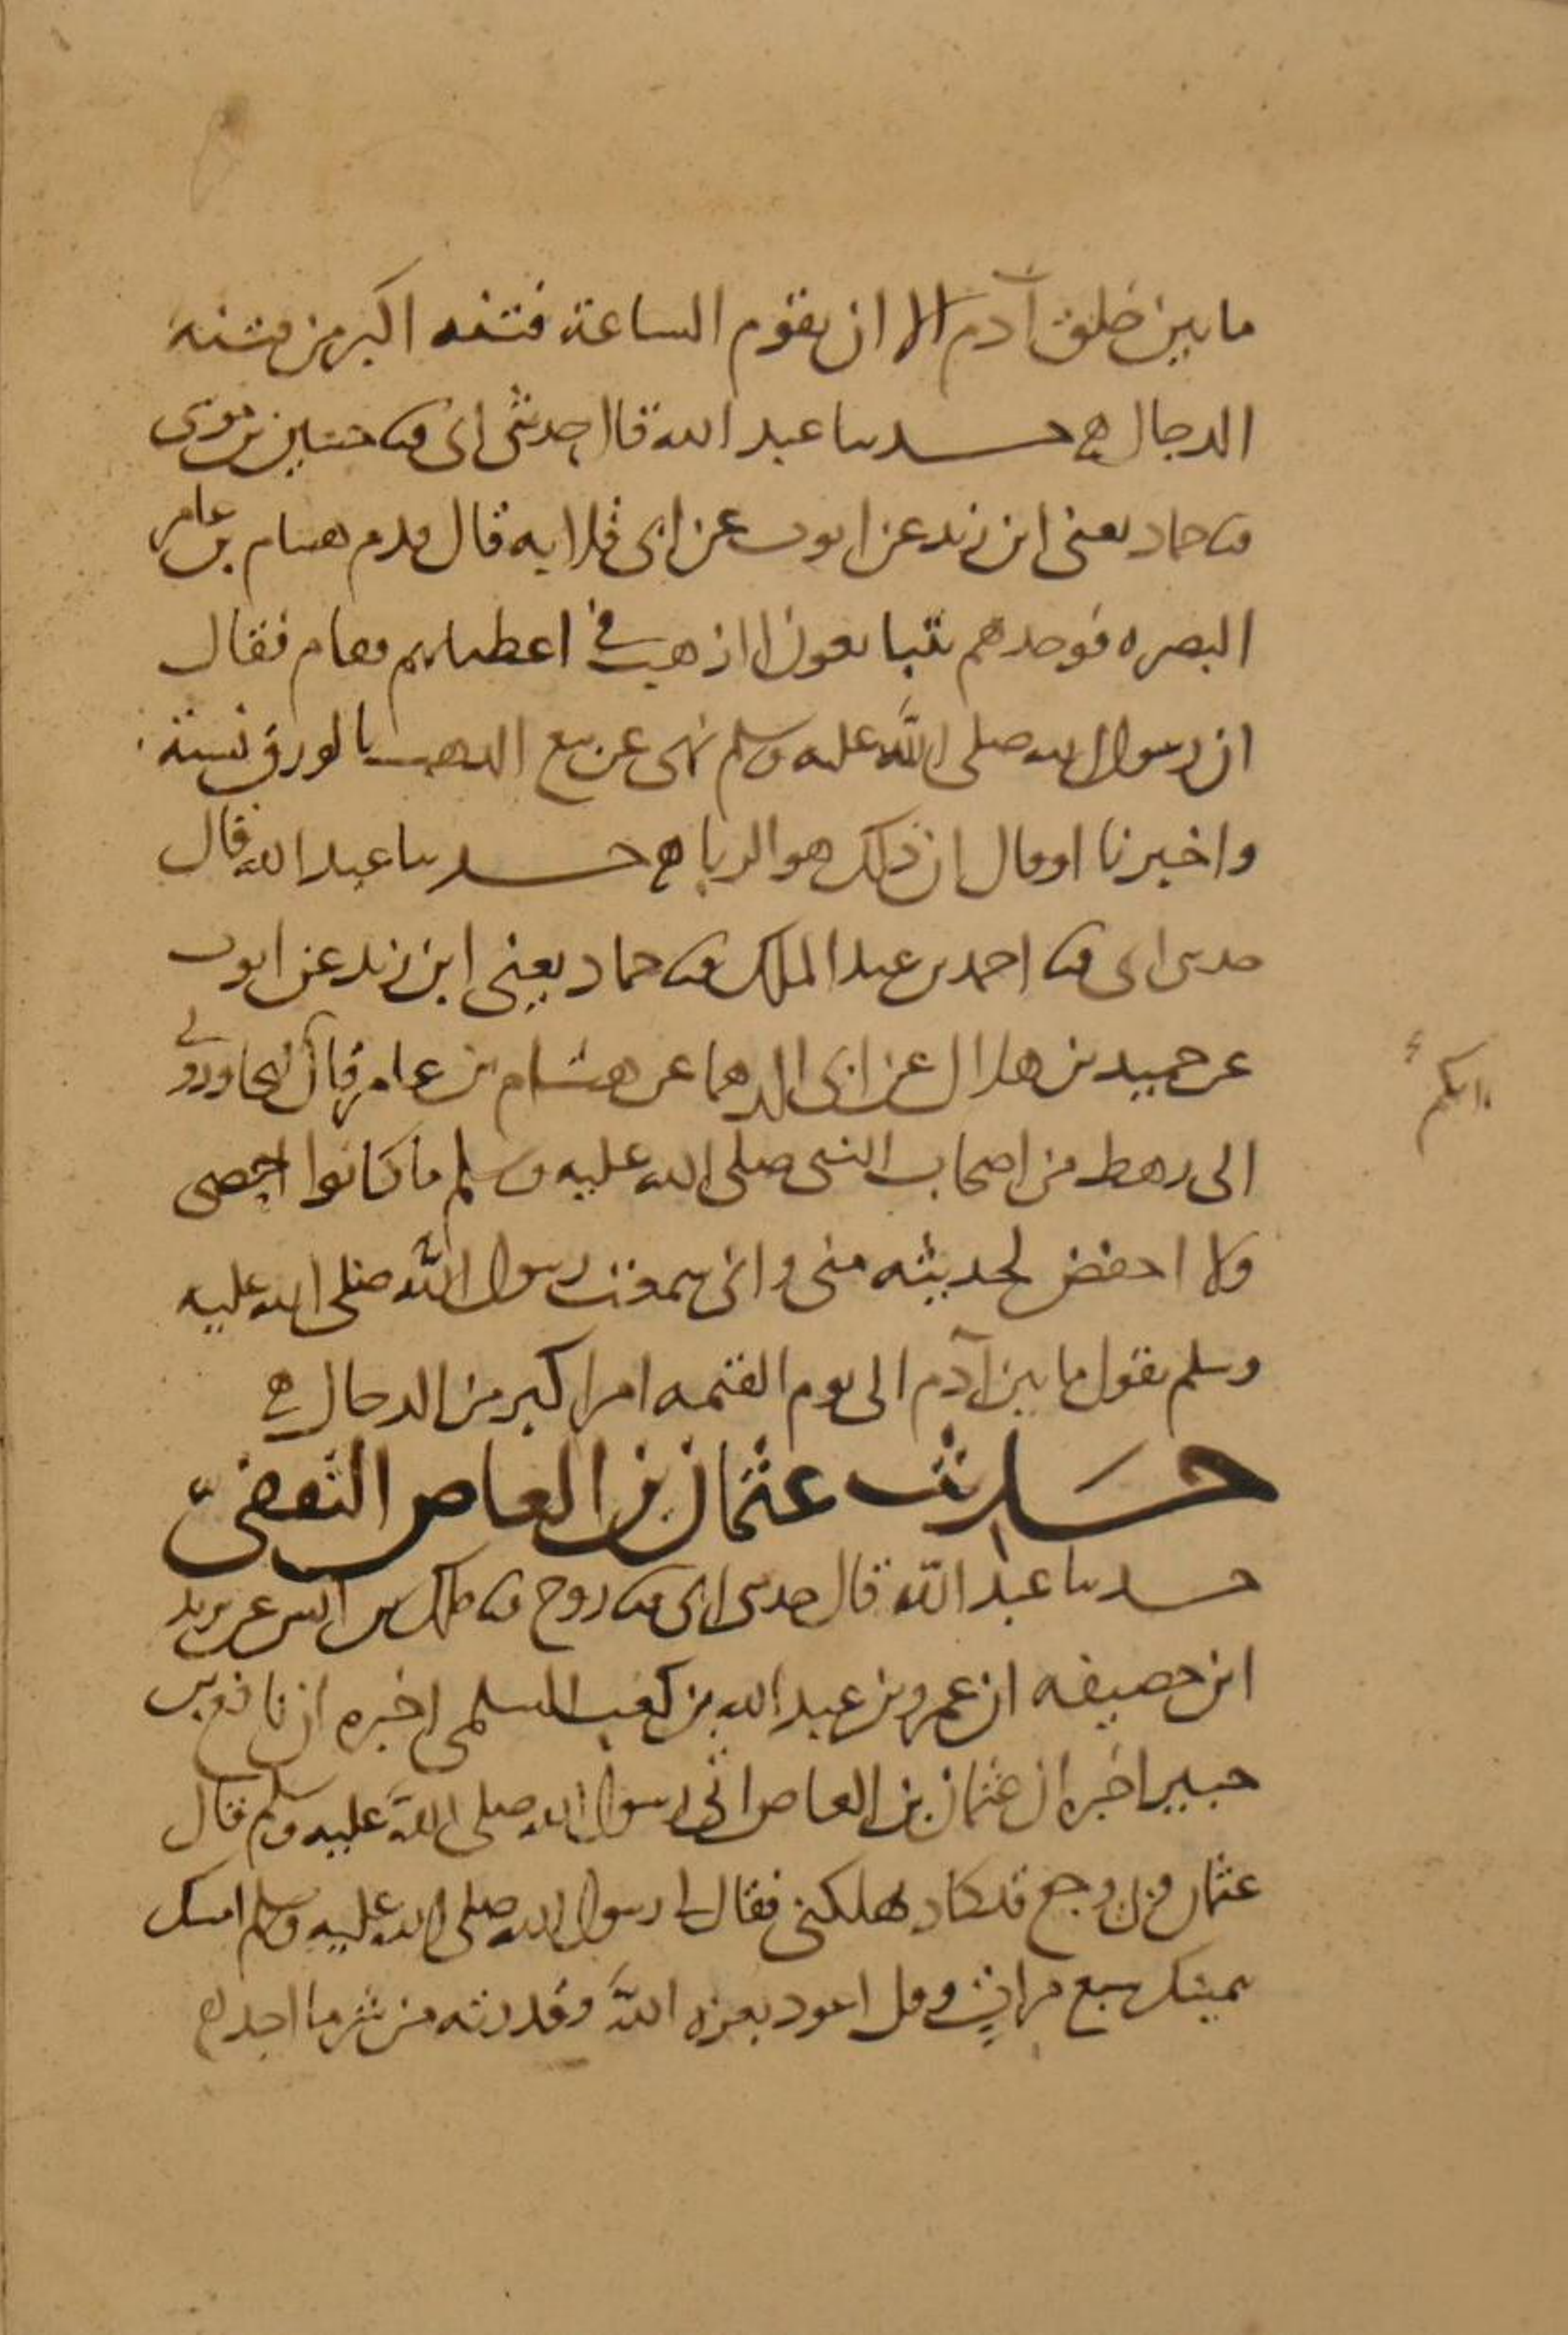 ما بين خلق آدم الى ان يقوم الساعة فتنه اكبر من فتنه
الدجال ه حدثنا عبد الله قال حدثنى ابى ثنا حسين بن موسى
ثنا حماد يعنى ابن زيد عن ايوب عن ابى قلابه قال قدم هشام بن عامر
البصره فوجدهم يتبايعون الذهب فى اعطياتهم فقام فقال
ان رسول الله صلى الله عليه وسلم نهى عن بيع الذهب بالورق نسيئة
واخبرنا او قال ان ذلك هو الربا ه حدثنا عبد الله قال
حدثنى ابى ثنا احمد بن عبد الملك ثنا حماد يعنى ابن زيد عن ايوب
عن حميد بن هلال عن ابى الدهما عن هشام بن عامر قال لتجاورونى
انكم
الى رهط من اصحاب النبى صلى الله عليه وسلم ما كانوا احصى
ولا احفض لحديثه منى وانى سمعت رسول الله صلى الله عليه
وسلم يقول ما بين آدم الى يوم القيمه امر اكبر من الدجال ه
حديث عثمان بن العاص الثقفى
حدثنا عبد الله قال حدثنى ابى ثنا روح ثنا ملك بن انس عن يزيد
ابن خصيفه ان عمرو بن عبد الله بن كعب السلمى اخبره ان نافع بن
جبير اخبره ان عثمان بن العاص اتى رسول الله صلى الله عليه وسلم قال
عثمان وبى وجع قد كاد يهلكنى فقال لى رسول الله صلى الله عليه وسلم امسك
بيمينك سبع مرات وقل اعوذ بعزه الله وقدرته من شر ما اجد ه